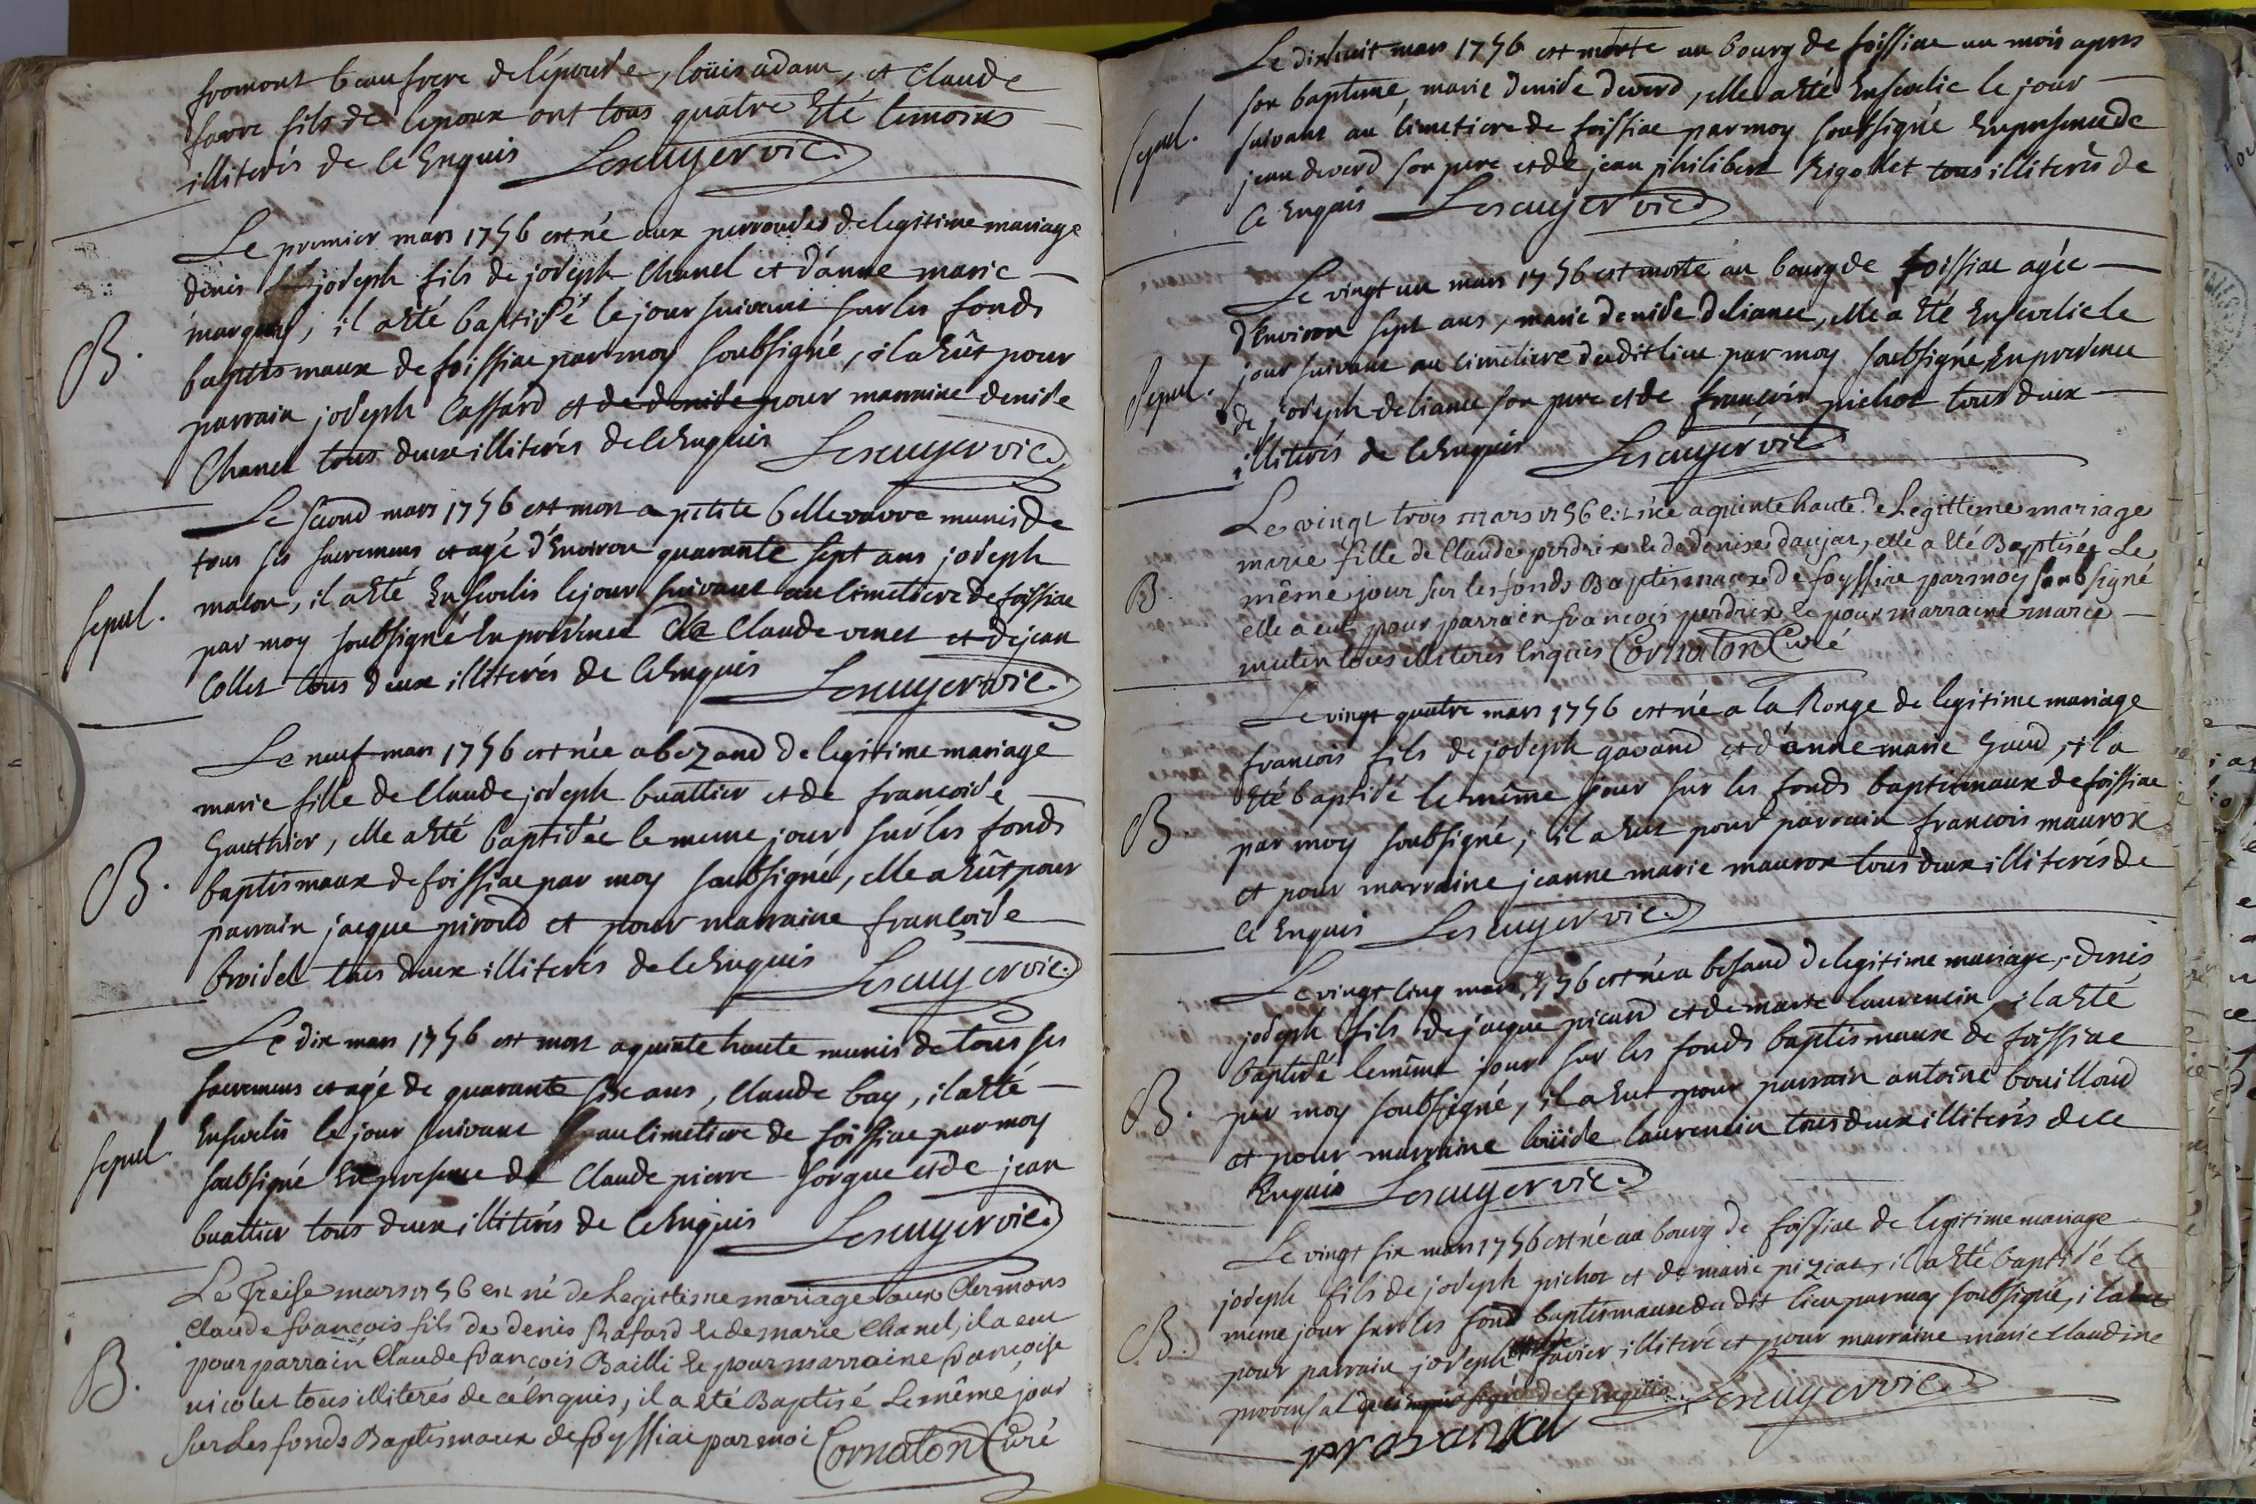 fromont beaufrere de lépouse, loüis adam, et Claude
favre fils de lepoux ont tous quatre Eté temoins
illiterés de ce Enquis Lescuyer vic.
Le premier mars 1756 est né aux perroudes de legitime mariage
denis joseph fils de joseph Chanel et d'anne marie
B.
, il a Eté baptisé le jour suivant sur les fonds
baptismaux de foissiac par moy soubsigné, il a Eût pour
parrain joseph Cassard et de denise pour marraine denise
Chanel tous deux illiterés de ce Enquis Lescuyer vic.
Le second mars 1756 est mort a petite bellevavre munis de
tous ses sacremens et agé d'Environ quarante sept ans joseph
sepul.
maton, il a Eté Ensevelis le jour suivant au cimetiere de foissiac
par moy soubsigné En presence de Claude venet et de jean
Collet tous deux illiterés de ce Enquis Lescuyer vic.
Le neuf mars 1756 est née a bezand de legitime mariage
marie fille de Claude joseph buattier et de francoise
Gautthier, elle a Eté baptisée le meme jour sur les fonds
B.
baptismaux de foissiac par moy soubsigné, elle a Eût pour
parrain jacque piroud et pour marraine françoise
broidet tous deux illiterés de ce Enquis Lescuyer vic.
Le dix mars 1756 est mort a quinte haute munis de tous ses
sacremens et agé de quarante six ans, Claude bay, il a Eté
sepul.
Ensevelis le jour suivant au cimetiere de foissiac par moy
soubsigné En presence de Claude pierre sorgue et de jean
buattier tous deux illiterés de ce Enquis Lescuyer vic.
Le Treise mars 1756 est né de Legittisme mariage aux Clermons
Claude françois fils de denis Rafard & de marie Chanel, il a eut
B.
pour parrain Claude françois Bailli & pour marraine françoise
nicolet tous illiterés de cé Enquis, il a eté Baptisé Le même jour
sur Les fonds Baptismaux de foyssiac par moi Cornaton Curé
Le dixhuit mars 1756 est morte au bourg de foissiac un mois apres
sepul.
son baptême, marie denise deverd, elle a Eté Ensevelie le jour
suivant au cimetiere de foissiac par moy soubsigné En presence de
jean deverd son pere et de jean philibert Rigollet tous illiterés de
ce Enquis Lescuyer vic.
Le vingt un mars 1756 est morte au bourg de foissiac agée
d'Environ sept ans, marie denise deliance, elle a Eté Ensevelie le
sepul.
jour suivant au cimetiere dudit lieu par moy soubsigné En presence
de joseph deliance son pere et de françois pichot tous deux
illiterés de ce Enquis Lescuyer vic.
Le vingt trois mars 1756 est née a quinte haute de Legittime mariage
marie fille de Claude perdrix & de denise daujat, elle a eté Baptisée Le
B.
même jour sur les fonds Baptismaux de foyssiac par moy soubsigné
elle a eut pour parrain françois perdrix & pour marraine marie
mutin tous illiteres Enquis Cornaton Curé
Le vingt quatre mars 1756 est né a la Ronge de legitime mariage
francois fils de joseph gavand et d'anne marie Gaud, il a
Eté baptisé le même jour sur les fonds baptismaux de foissiac
B.
par moy soubsigné, il a Eut pour parrain francois maurox
et pour marraine jeanne marie maurox tous deux illiterés de
ce Enquis Lescuyer vic.
Le vingt cinq mars 1756 est né a besand de legitime mariage, denis
joseph fils de jacque picard et de marie laurencin, il a Eté
baptisé le même jour sur les fonds baptismaux de foissiac
B.
par moy soubsigné, il a Eut pour parrain antoine bouilloud
et pour marraine loüise laurencin tous deux illiterés de ce
Enquis Lescuyer vic.
Le vingt six mars 1756 est né au bourg de foissiac de legitime mariage
joseph fils de joseph pichot et de marie piziat, il a Eté baptisé le
B.
meme jour sur les fond baptismaux du dit lieu par moy soubsigné, il a Eut
pour parrain joseph favier illiteré et pour marraine marie Claudine
provensal de ce Enquis Lescuyer vic.